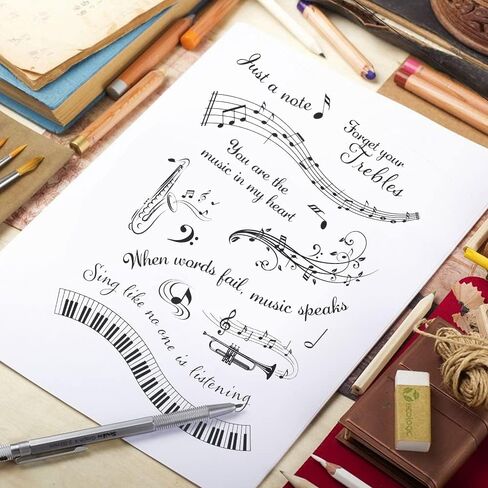 Just a note
Forget your
Trebles
You are the
music in my heart
When words fail, music speaks
Sing like no one is listening